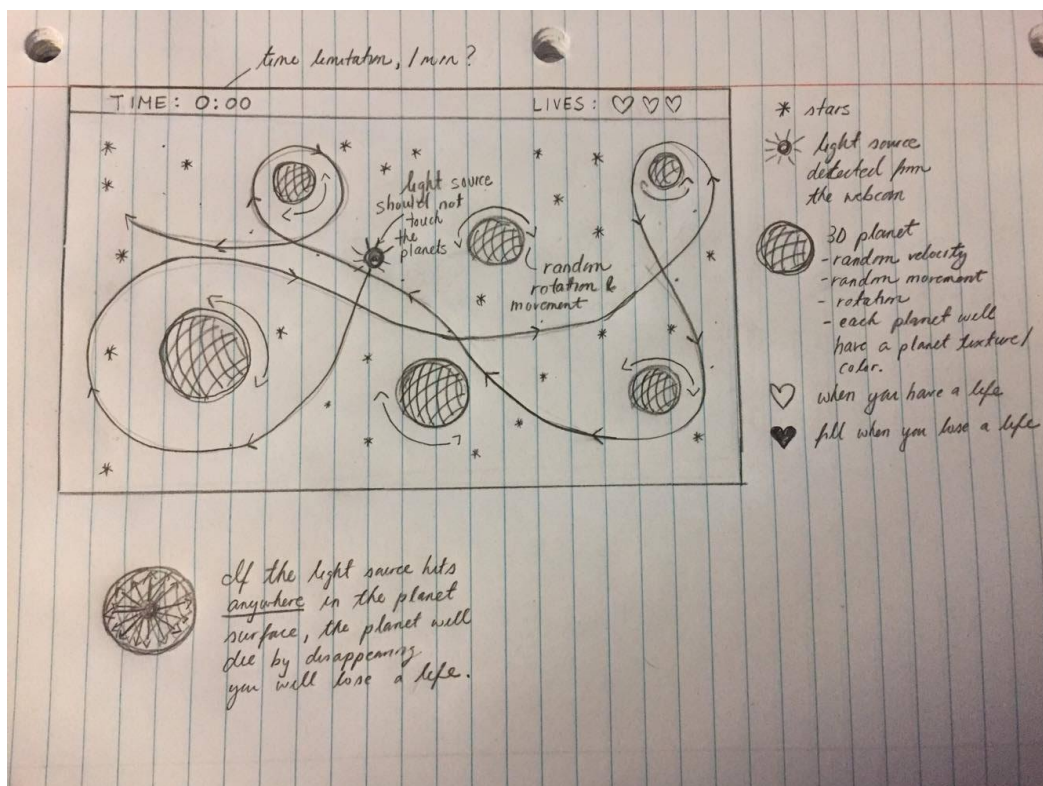 time limitation, 1 min?
TIME: 0:00
LIVES:
light source
should not
touch
the
planets
random
rotation &
movement
stars
light source
detected from
the webcam
3D planet
- random velocity
- random movement
- rotation
- each planet will
have a planet texture/
color.
when you have a life
fill when you lose a life
If the light source hits
anywhere in the planet
surface, the planet will
die by disappearing
you will lose a life.